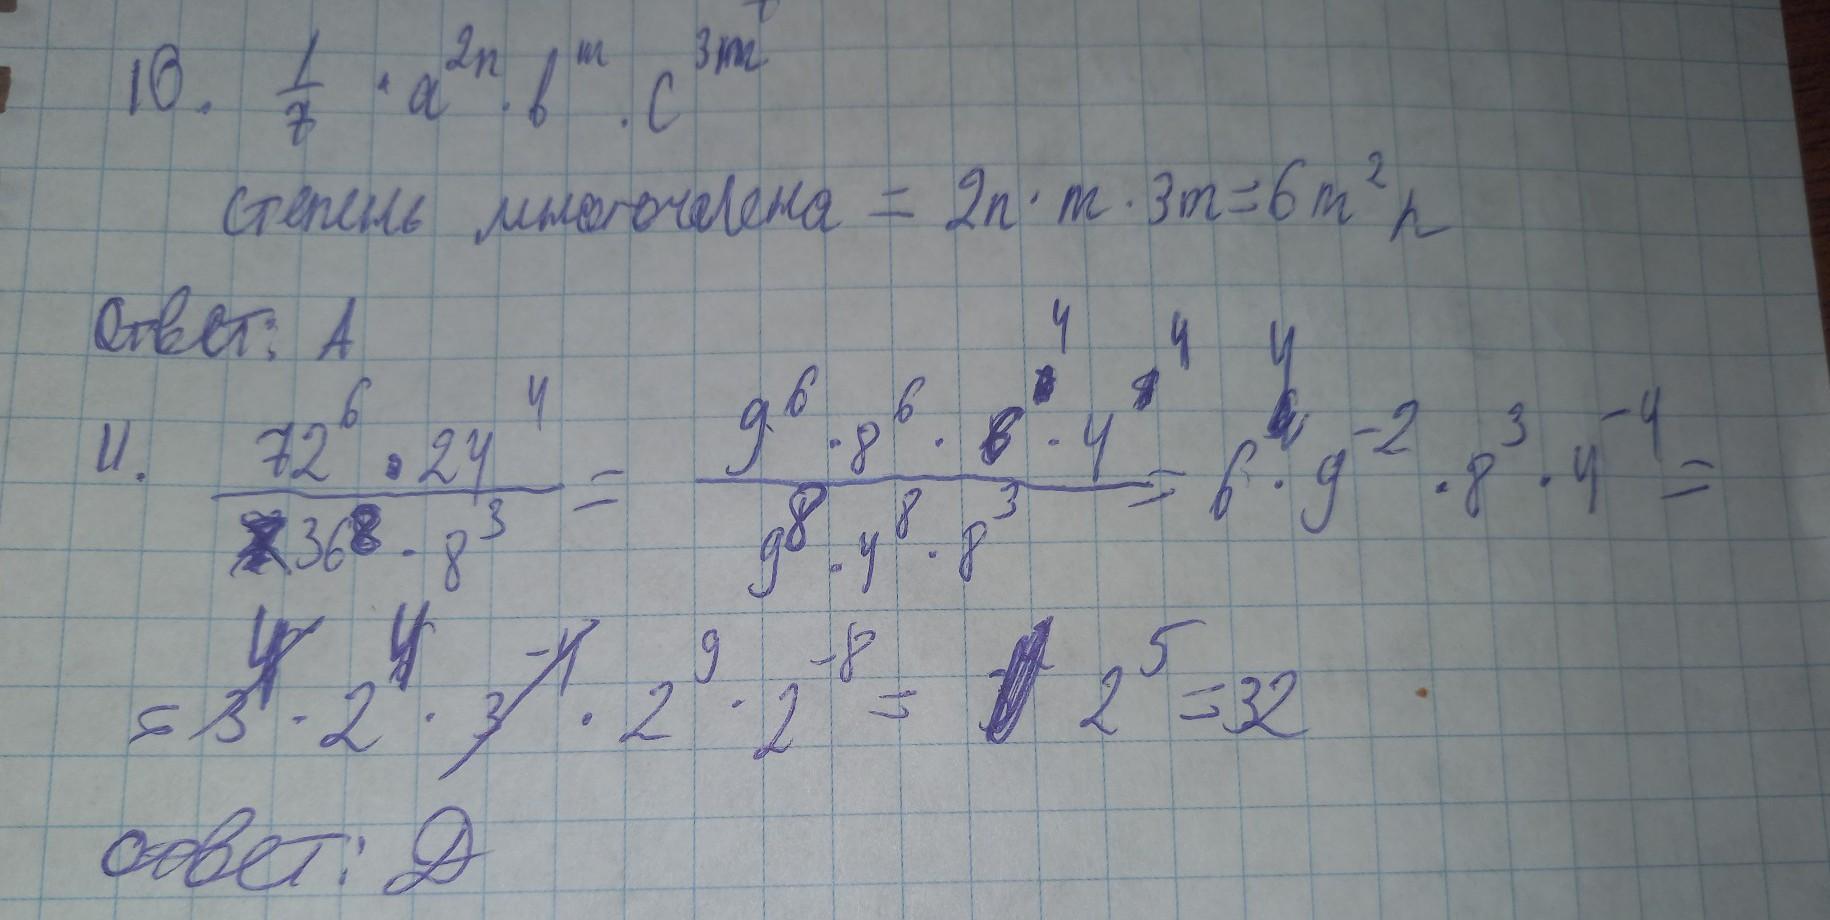 10. 1/7 · a^2n · b^m · c^3m
степень многочлена = 2n · m · 3m = 6m^2 n
Ответ: А
11. 72^6 · 24^4 / 36^8 · 8^3 = 9^6 · 8^6 · 6^4 · 4^4 / 9^8 · 4^8 · 8^3 = 6^4 · 9^-2 · 8^3 · 4^-4 =
= 3^4 · 2^4 · 3^-4 · 2^9 · 2^-8 = 2^5 = 32
ответ: Д